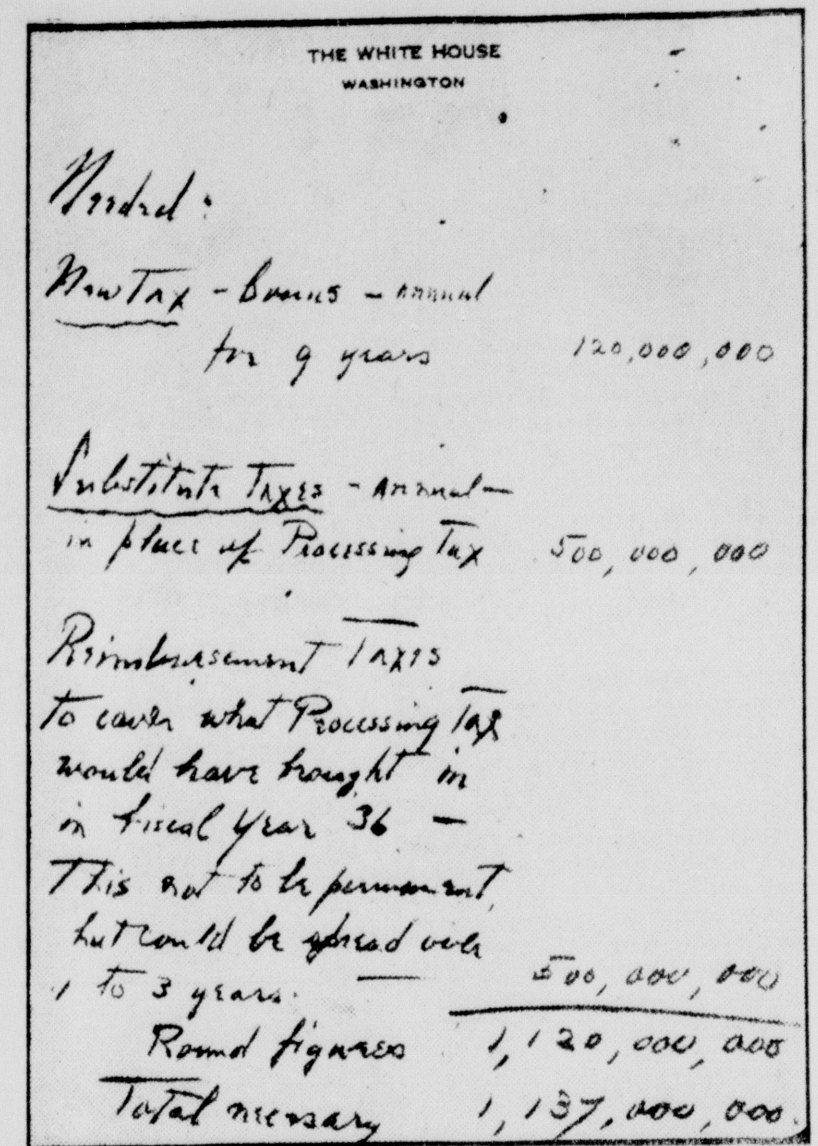 THE WHITE HOUSE
WASHINGTON
Needed:
New Tax - Bonus - annual
for 9 years 120,000,000
Substitute Taxes - annual -
in place of Processing Tax 500,000,000
Reimbursement Taxes
to cover what Processing Tax
would have brought in
in Fiscal Year 36 -
This not to be permanent,
but could be spread over
1 to 3 years. — 500,000,000
Round figures 1,120,000,000
Total necessary 1,137,000,000